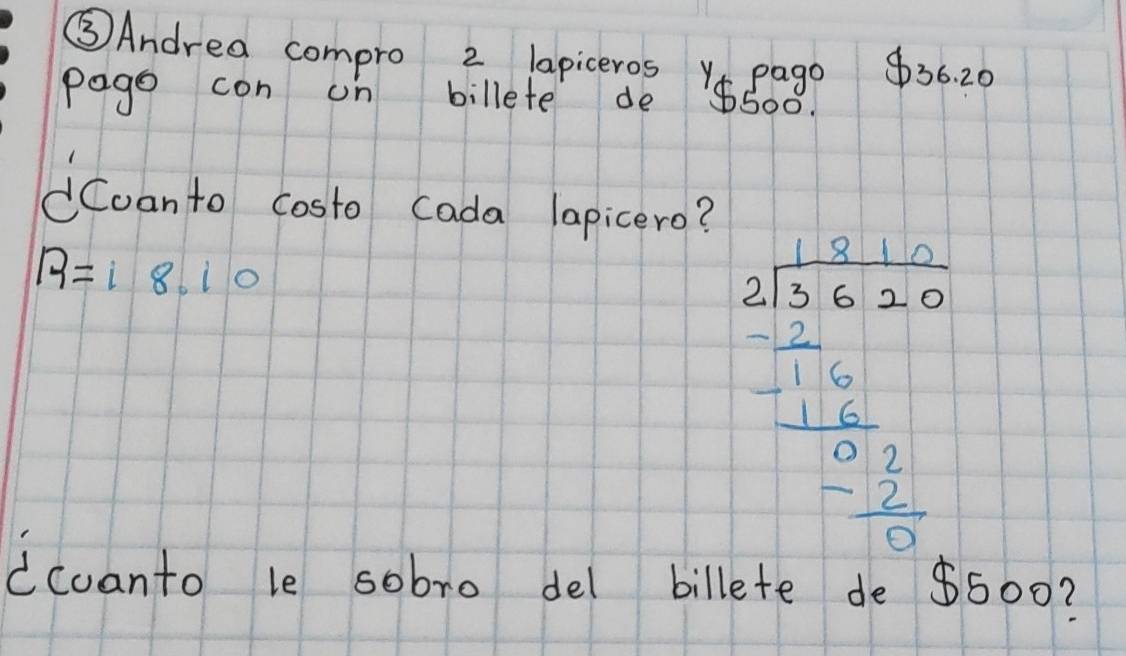 ③ Andrea compro 2 lapiceros y pago $36.20
pago con un billete de $500.
¿Cuanto costo cada lapicero?
R=18.10
1810
2 3620
-2
-16
16
02
-2
0
¿cuanto le sobro del billete de $500?